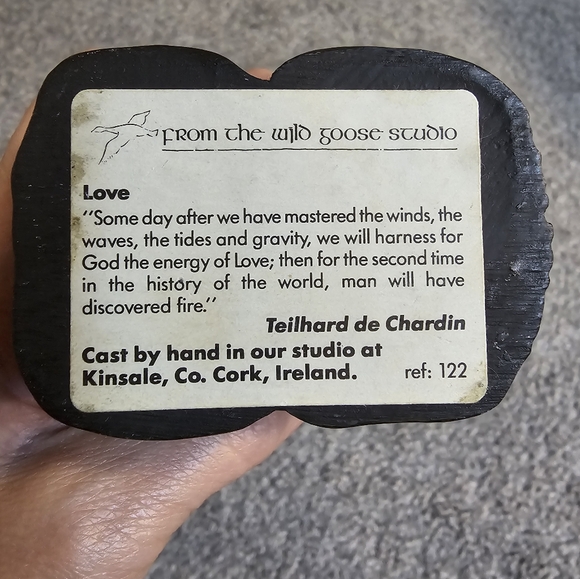 From the wild goose studio
Love
“Some day after we have mastered the winds, the
waves, the tides and gravity, we will harness for
God the energy of Love; then for the second time
in the history of the world, man will have
discovered fire.”
Teilhard de Chardin
Cast by hand in our studio at
Kinsale, Co. Cork, Ireland. ref: 122